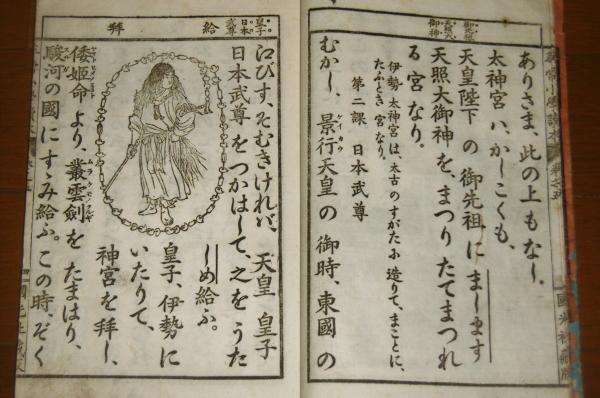 ありさま、此の上もなし。
太神宮ハ、かしこくも、
天皇陛下の御先祖にまします
天照大御神を、まつりたてまつれ
る宮なり。
伊勢太神宮は、太古のすがたに造りて、まことに、
たふとき宮なり。
第二課 日本武尊
むかし、景行天皇の御時、東國の
ケイカウ
御先祖
天照大
御神
皇子
日本
武尊
給
拜
江びす、そむきけれバ、天皇皇子
日本武尊をつかはして、之をうた
しめ給ふ。
皇子、伊勢に
いたりて、
神宮を拜し、
倭姫命より、叢雲劍をたまはり、
ムラクモノツルギ
駿河の國にすゝみ給ふ。この時、ぞく